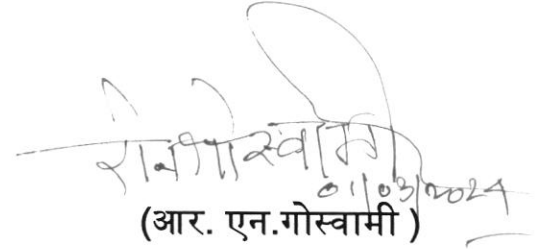 रा.न.गोस्वामी
01/03/2024
(आर. एन.गोस्वामी )